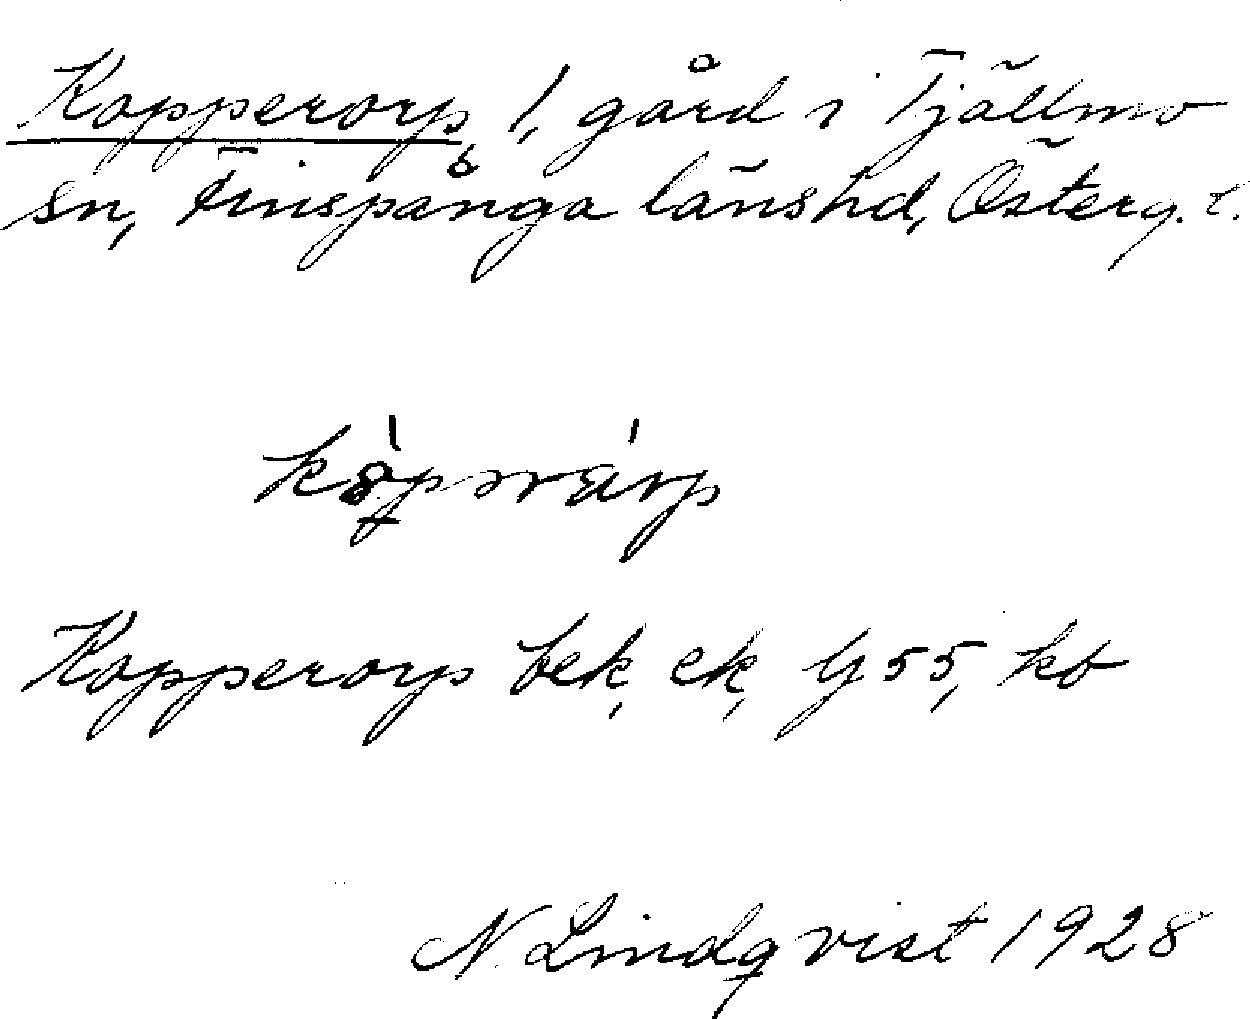 Kopperorp 1, gård i Tjällmo
sn, Finspånga länshd, Österg. l.
Kopperorp bek, ek, G 55, kb
N. Lindqvist 1928